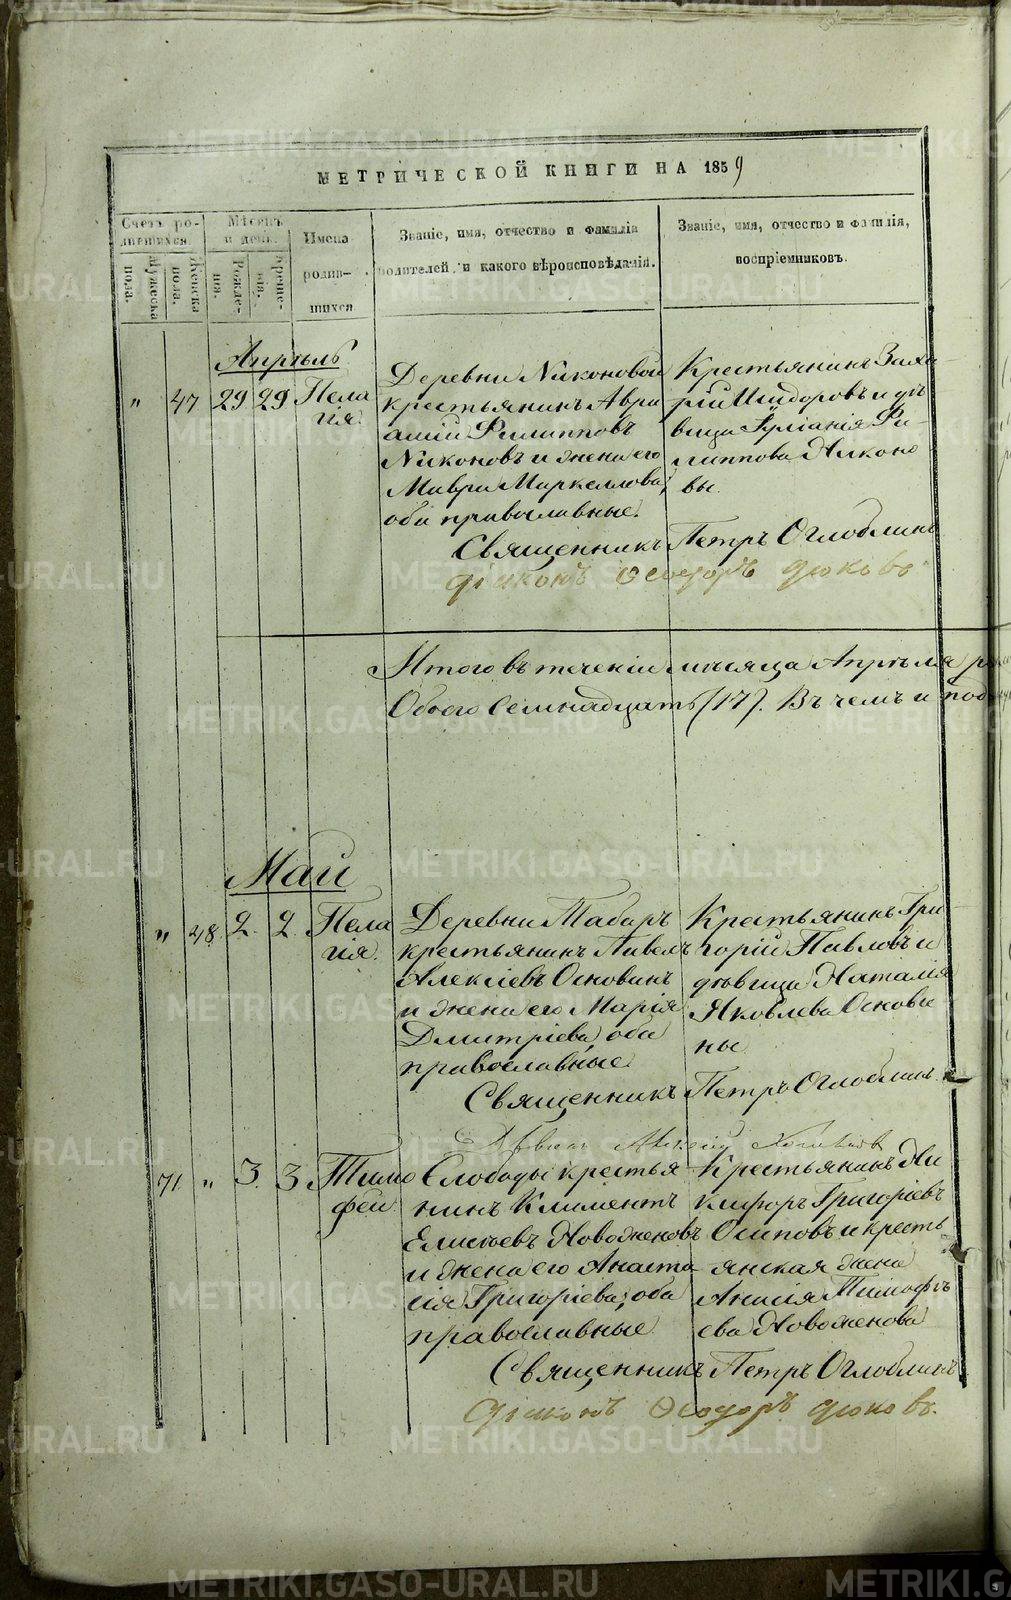 МЕТРИЧЕСКОЙ КНИГИ НА 1859
Счетъ родившихся.
Мужеска пола.
Женска пола.
Мѣсяцъ и день.
Рожденія.
Крещенія.
Имена родившихся
Званіе, имя, отчество и фамилія
родителей и какого вѣроисповѣданія.
Званіе, имя, отчество и фамилія,
воспріемниковъ.
Апрѣль
" 47 29 29 Пелагія.
Деревни Никоновой
крестьянинъ Авра
амій Филипповъ
Никоновъ и жена его
Мавра Маркеллова,
оба православные.
Крестьянинъ Заха
рій Исидоровъ и дѣ
вица Іуліанія Фи-
липпова Никоно
вы.
Священникъ Петръ Оглоблинъ
діаконъ Ѳеодоръ Дюковъ
Итого въ теченіи мѣсяца Апрѣля
Обоего Семнадцать (17). Въ чемъ и
Май
" 48. 2. 2. Пелагія.
Деревни Табаръ
крестьянинъ Павелъ
Алексіевъ Основинъ
и жена его Марія
Дмитріева, оба
православные.
Крестьянинъ Гри-
горій Павловъ и
дѣвица Наталія
Яковлева Основи
ны
Священникъ Петръ Оглоблинъ
71 " 3. 3 Тимофей
Слободы крестья
нинъ Климентъ
Елисѣевъ Новоженовъ
и жена его Анаста
сія Григоріева, оба
православные
Крестьянинъ Ни
кифоръ Григоріевъ
Осиповъ и кресть
янская жена
Анисія Тимофѣ
ева Новоженова
Священникъ Петръ Оглоблинъ
діаконъ Ѳеодоръ Дюковъ.
METRIKI.GASO-URAL.RU